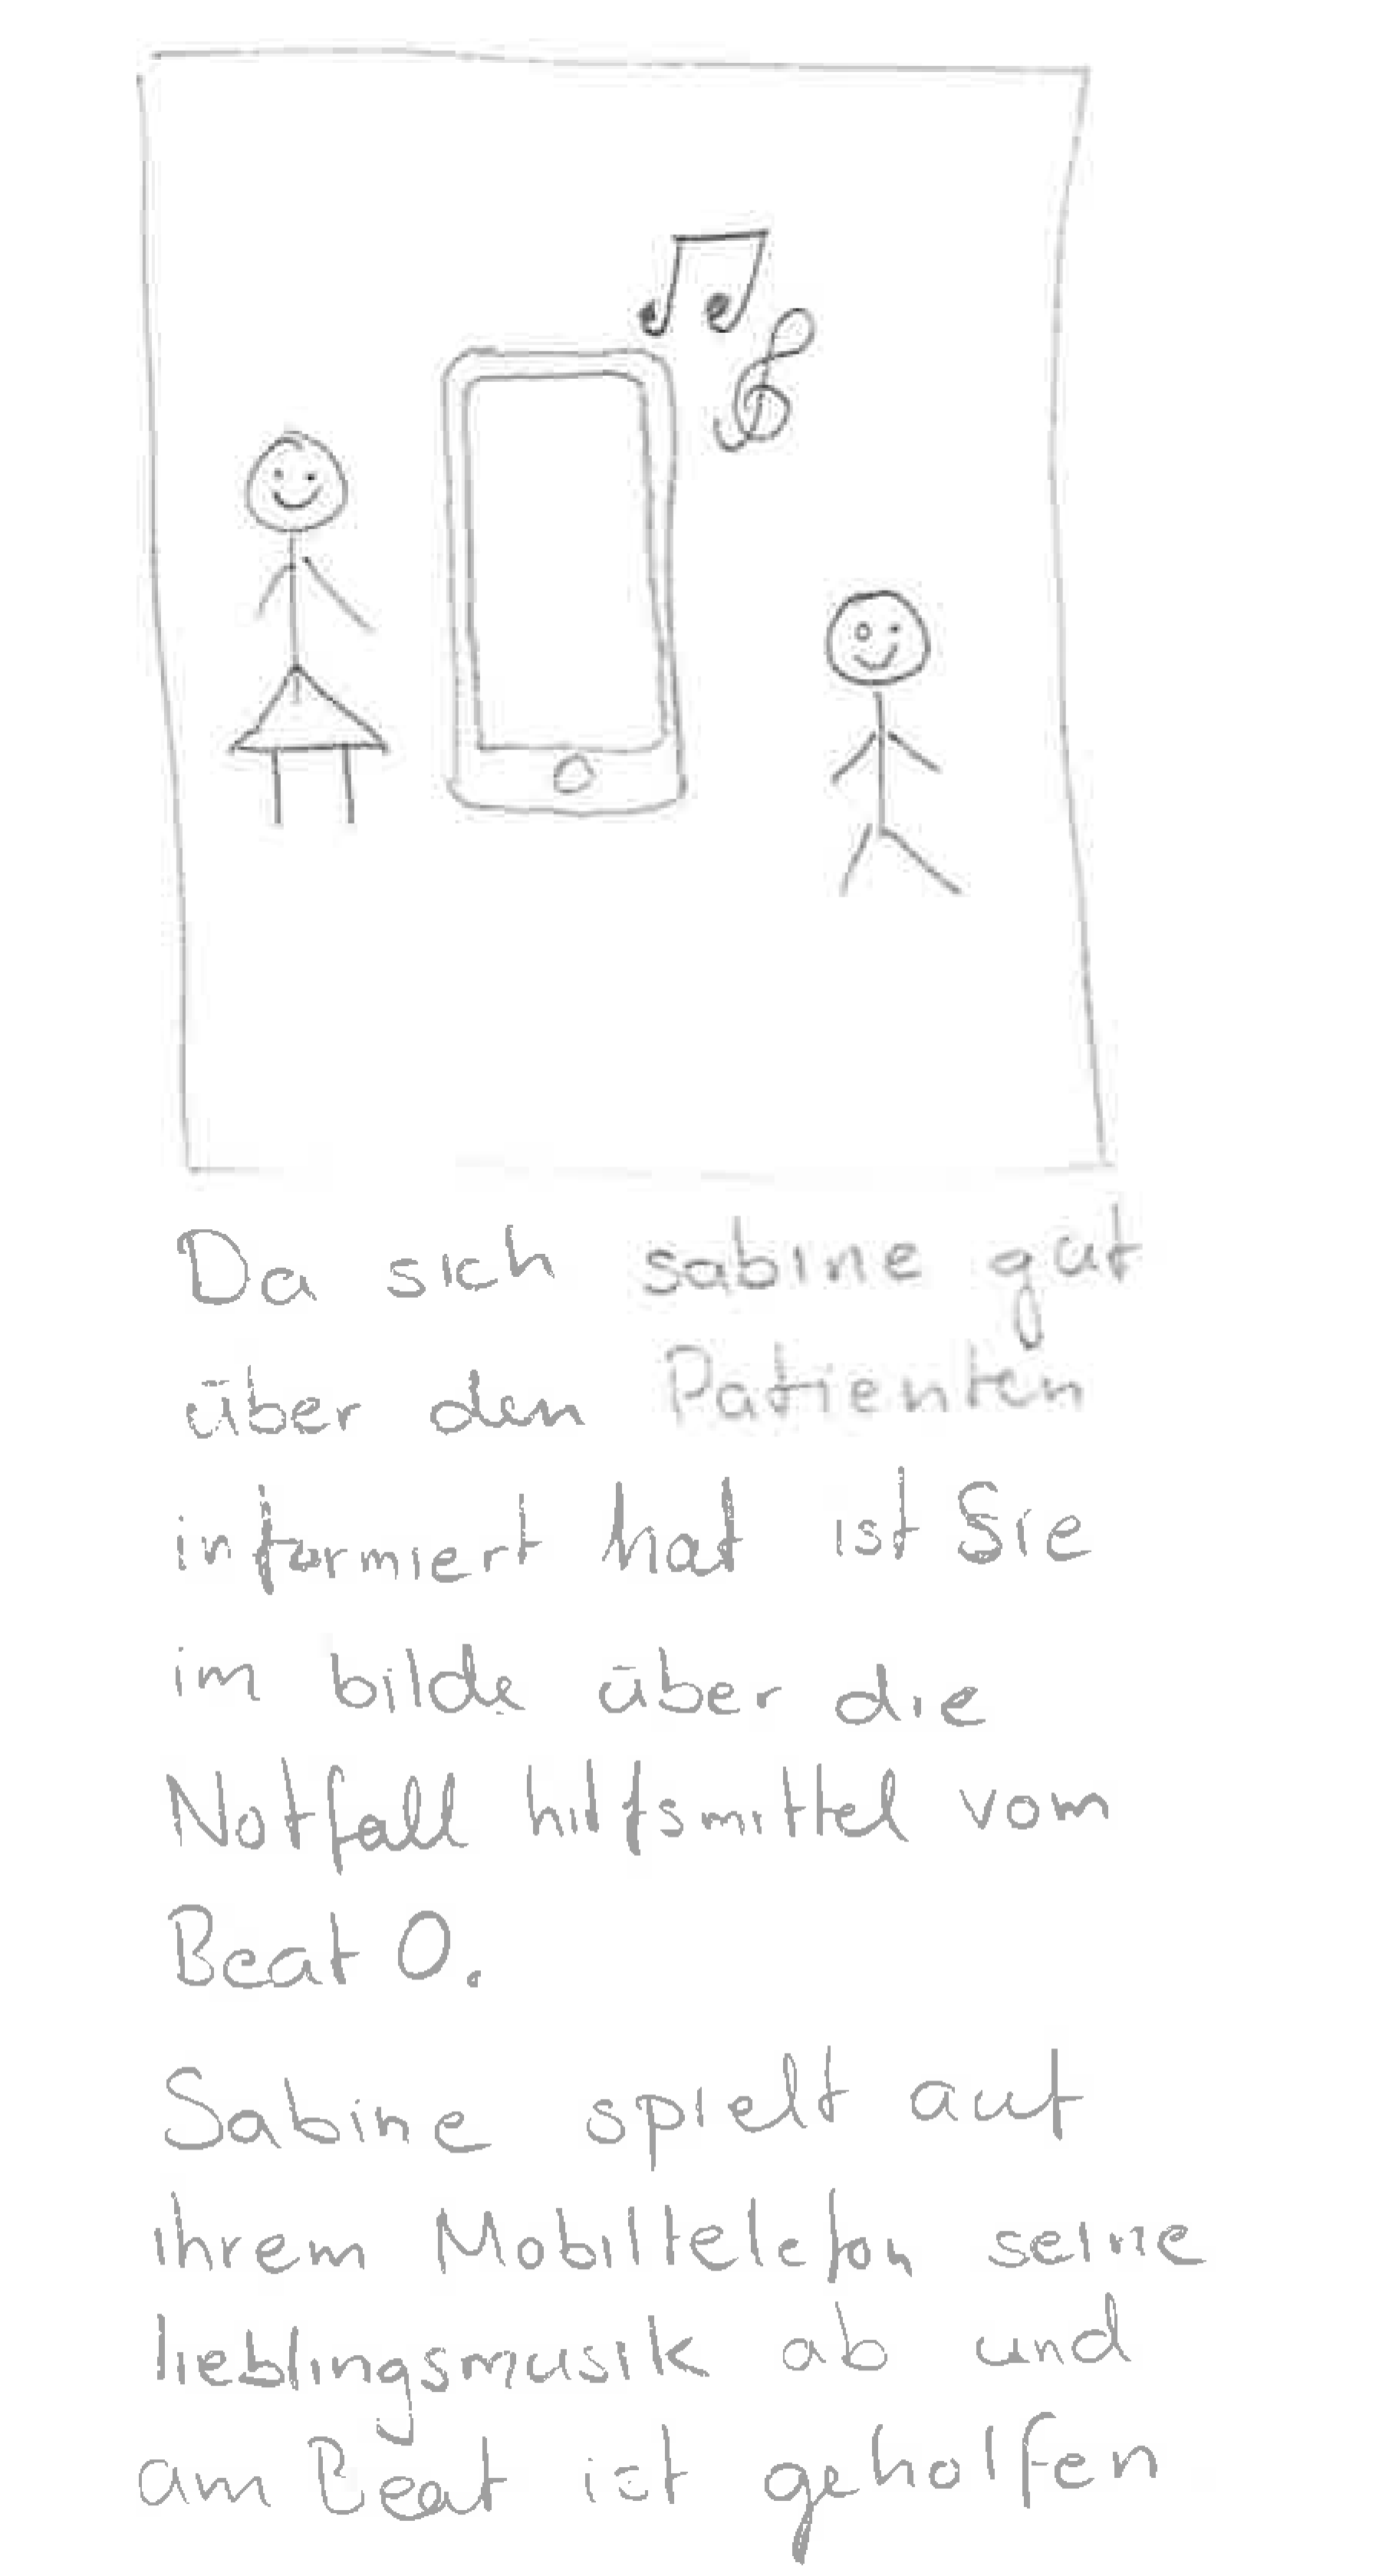 Da sich sabine gut
über den Patienten
informiert hat ist Sie
im bilde über die
Notfall hilfsmittel vom
Beat O.
Sabine spielt auf
ihrem Mobiltelefon seine
lieblingsmusik ab und
am Beat ist geholfen